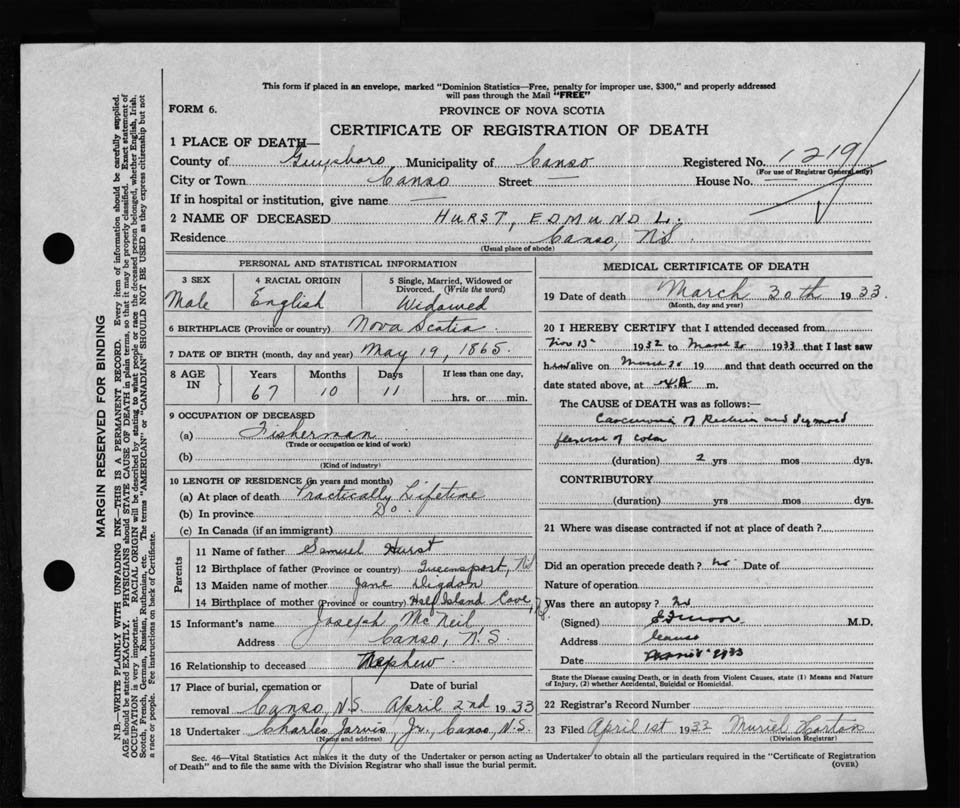 This form if placed in an envelope, marked "Dominion Statistics—Free, penalty for improper use, $300," and properly addressed
will pass through the Mail "FREE"
FORM 6.
PROVINCE OF NOVA SCOTIA
CERTIFICATE OF REGISTRATION OF DEATH
1 PLACE OF DEATH—
County of Guysboro Municipality of Canso Registered No. 1219
(For use of Registrar General only)
City or Town Canso Street — House No. —
If in hospital or institution, give name —
2 NAME OF DECEASED HURST, EDMUND L.
Residence Canso, N.S.
(Usual place of abode)
PERSONAL AND STATISTICAL INFORMATION
3 SEX 4 RACIAL ORIGIN 5 Single, Married, Widowed or
Divorced. (Write the word)
Male English Widowed
6 BIRTHPLACE (Province or country) Nova Scotia
7 DATE OF BIRTH (month, day and year) May 19, 1865.
8 AGE IN Years Months Days If less than one day,
67 10 11 hrs. or min.
9 OCCUPATION OF DECEASED
(a) Fisherman
(Trade or occupation or kind of work)
(b)
(Kind of industry)
10 LENGTH OF RESIDENCE (in years and months)
(a) At place of death Practically Lifetime
(b) In province Do.
(c) In Canada (if an immigrant)
Parents
11 Name of father Samuel Hurst
12 Birthplace of father (Province or country) Queensport, N.S.
13 Maiden name of mother Jane Digdon
14 Birthplace of mother (Province or country) Half Island Cove, N.S.
15 Informant's name Joseph McNeil,
Address Canso, N.S.
16 Relationship to deceased Nephew.
17 Place of burial, cremation or Date of burial
removal Canso, N.S. April 2nd 1933
18 Undertaker Charles Jarvis, Jr., Canso N.S.
(Name and address)
MEDICAL CERTIFICATE OF DEATH
19 Date of death March 30th 1933.
(Month, day and year)
20 I HEREBY CERTIFY that I attended deceased from
Nov 13 1932 to March 30 1933 that I last saw
h alive on March 30 19 and that death occurred on the
date stated above, at m.
The CAUSE of DEATH was as follows:—
Carcinoma of Rectum and Sygmoid
flexure of colon
(duration) 2 yrs mos dys.
CONTRIBUTORY
(duration) yrs mos dys.
21 Where was disease contracted if not at place of death?
Did an operation precede death? No Date of
Nature of operation
Was there an autopsy? No
(Signed) M.D.
Address Canso
Date 1933
State the Disease causing Death, or in death from Violent Causes, state (1) Means and Nature
of Injury, (2) whether Accidental, Suicidal or Homicidal.
22 Registrar's Record Number
23 Filed April 1st 1933 Muriel Horton
(Division Registrar)
Sec. 46—Vital Statistics Act makes it the duty of the Undertaker or person acting as Undertaker to obtain all the particulars required in the "Certificate of Registration
of Death" and to file the same with the Division Registrar who shall issue the burial permit.
(OVER)
MARGIN RESERVED FOR BINDING
N.B.—WRITE PLAINLY WITH UNFADING INK—THIS IS A PERMANENT RECORD. Every item of information should be carefully supplied.
AGE should be stated EXACTLY. PHYSICIANS should STATE CAUSE OF DEATH in plain terms, so that it may be properly classified. Exact statement of
OCCUPATION is very important. RACIAL ORIGIN will be described by stating to what people or race the deceased person belonged, whether English, Irish,
Scotch, French, German, Russian, Ruthenian, etc. The terms "AMERICAN" or "CANADIAN" SHOULD NOT BE USED as they express citizenship but not
a race or people. See instructions on back of Certificate.